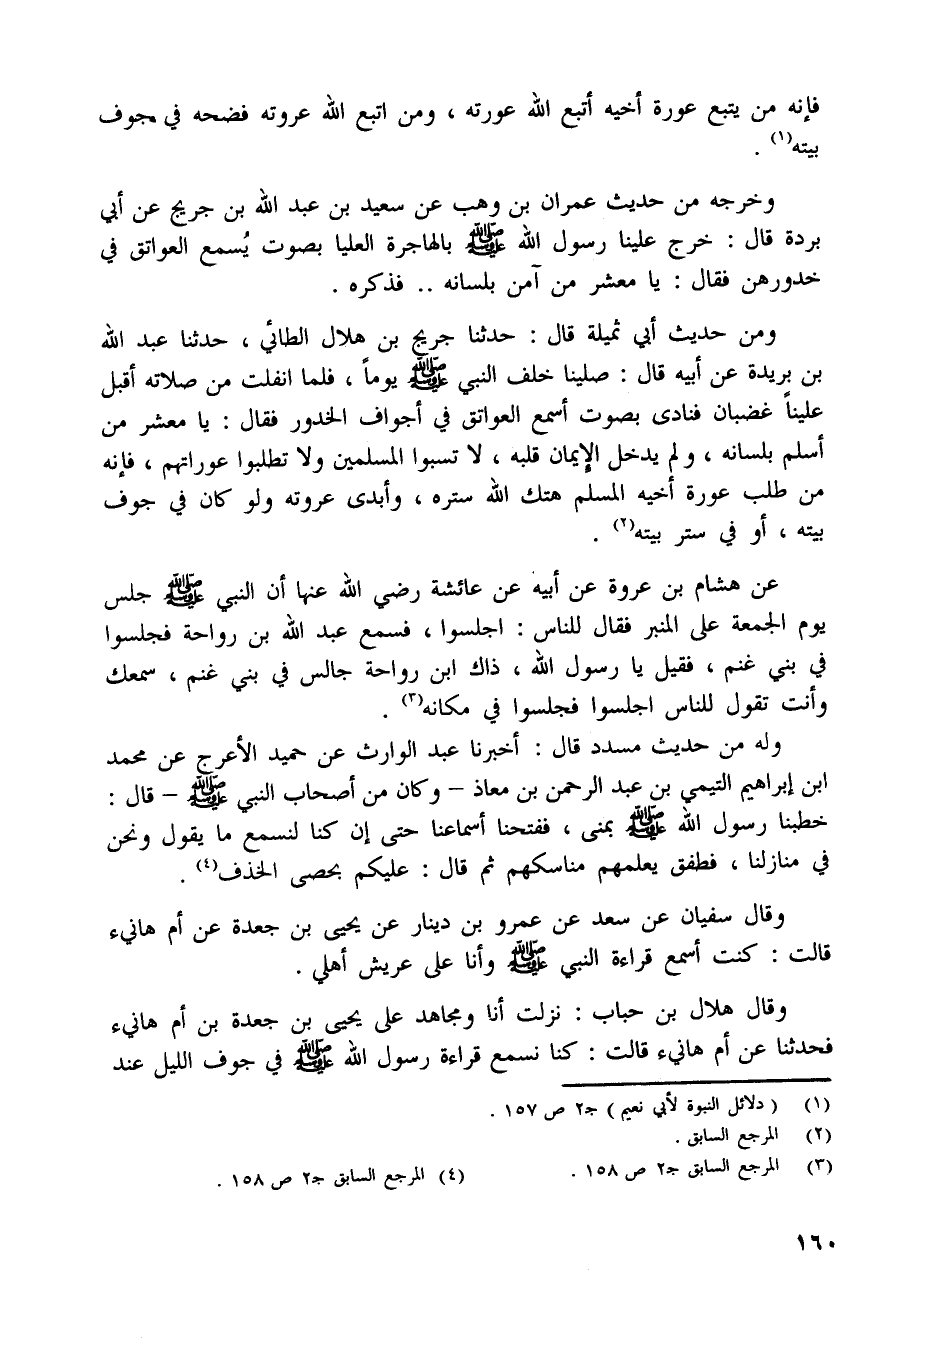 فإنه من يتبع عورة أخيه أتبع الله عورته ، ومن اتبع الله عروته فضحه في جوف
بيته(١) .
وخرجه من حديث عمران بن وهب عن سعيد بن عبد الله بن جريج عن أبي
بردة قال : خرج علينا رسول الله ﷺ بالهاجرة العليا بصوت يُسمع العواتق في
خدورهن فقال : يا معشر من آمن بلسانه .. فذكره .
ومن حديث أبي ثميلة قال : حدثنا جريج بن هلال الطائي ، حدثنا عبد الله
بن بريدة عن أبيه قال : صلينا خلف النبي ﷺ يوماً ، فلما انفلت من صلاته أقبل
عليناً غضبان فنادى بصوت أسمع العواتق في أجواف الخدور فقال : يا معشر من
أسلم بلسانه ، ولم يدخل الإيمان قلبه ، لا تسبوا المسلمين ولا تطلبوا عوراتهم ، فإنه
من طلب عورة أخيه المسلم هتك الله ستره ، وأبدى عروته ولو كان في جوف
بيته ، أو في ستر بيته(٢) .
عن هشام بن عروة عن أبيه عن عائشة رضي الله عنها أن النبي ﷺ جلس
يوم الجمعة على المنبر فقال للناس : اجلسوا ، فسمع عبد الله بن رواحة فجلسوا
في بني غنم ، فقيل يا رسول الله ، ذاك ابن رواحة جالس في بني غنم ، سمعك
وأنت تقول للناس اجلسوا فجلسوا في مكانه(٣) .
وله من حديث مسدد قال : أخبرنا عبد الوارث عن حميد الأعرج عن محمد
ابن إبراهيم التيمي بن عبد الرحمن بن معاذ – وكان من أصحاب النبي ﷺ – قال :
خطبنا رسول الله ﷺ بمنى ، ففتحنا أسماعنا حتى إن كنا لنسمع ما يقول ونحن
في منازلنا ، فطفق يعلمهم مناسكهم ثم قال : عليكم بحصى الخذف(٤) .
وقال سفيان عن سعد عن عمرو بن دينار عن يحيى بن جعدة عن أم هانيء
قالت : كنت أسمع قراءة النبي ﷺ وأنا على عريش أهلي .
وقال هلال بن حباب : نزلت أنا ومجاهد على يحيى بن جعدة بن أم هانيء
فحدثنا عن أم هانيء قالت : كنا نسمع قراءة رسول الله ﷺ في جوف الليل عند
(١) ( دلائل النبوة لأبي نعيم ) جـ٢ ص ١٥٧ .
(٢) المرجع السابق .
(٣) المرجع السابق جـ٢ ص ١٥٨ . (٤) المرجع السابق جـ٢ ص ١٥٨ .
١٦٠